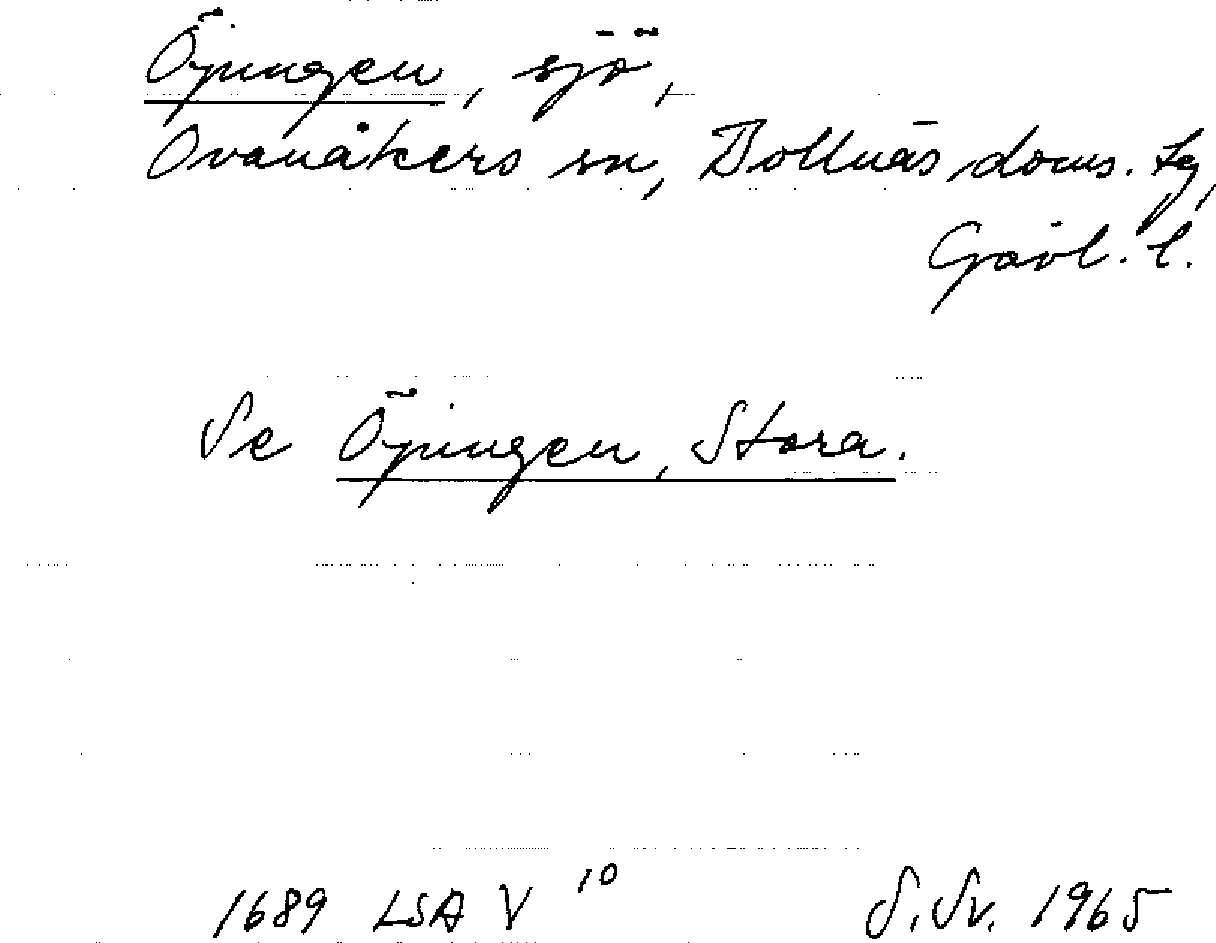 Öjungen, sjö,
Ovanåkers sn, Bollnäs doms. tg,
Gävl. l.
Se Öjungen, Stora.
1689 LSA V 10 S. Sv. 1965